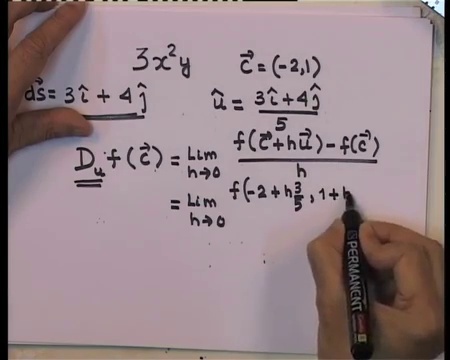 3x²y c⃗ = (-2,1)
d⃗s = 3î + 4ĵ û = (3î+4ĵ)/5
D_u f(c⃗) = Lim h→0 (f(c⃗+hu⃗) - f(c⃗))/h
= Lim h→0 f(-2 + h 3/5, 1+h
PERMANENT